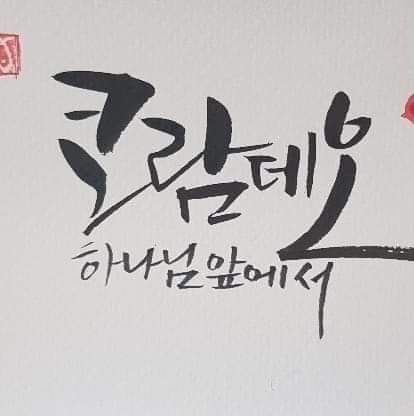 코람데오
하나님 앞에서